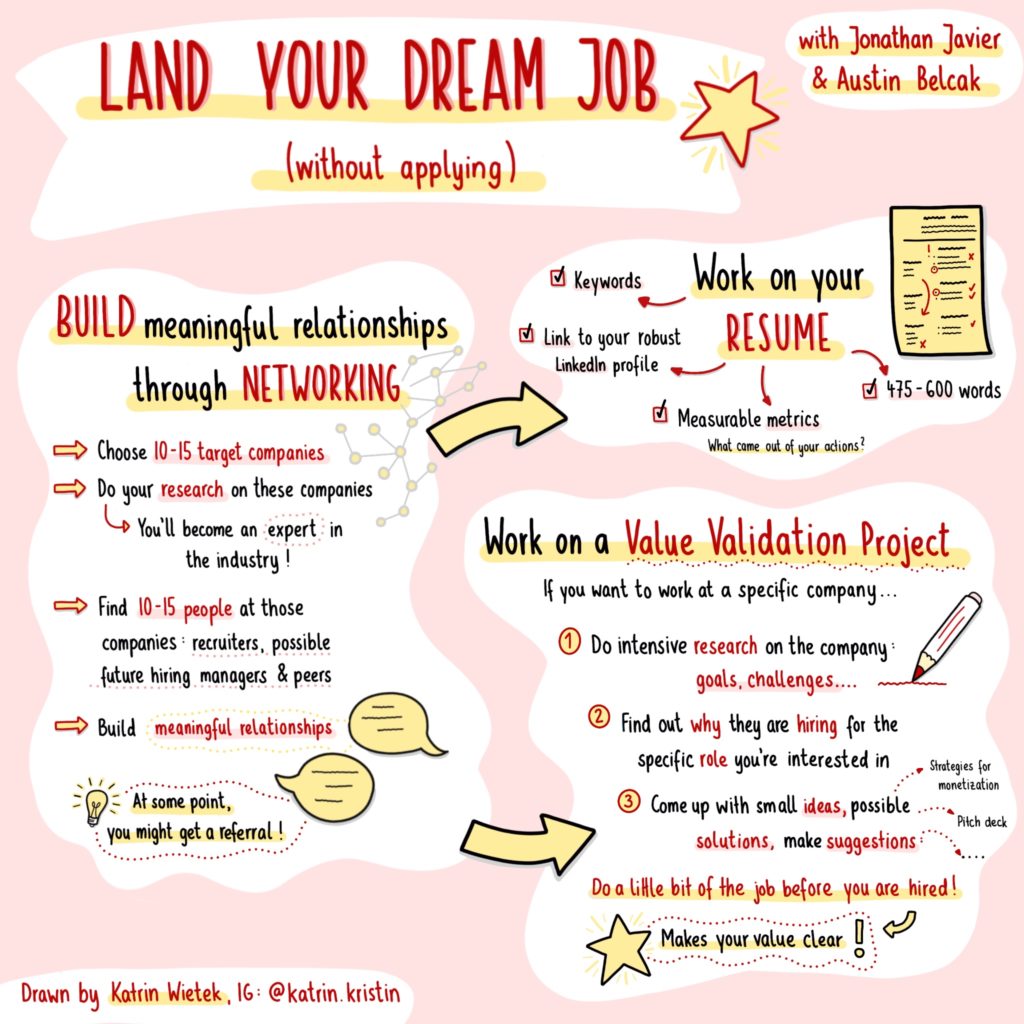 LAND YOUR DREAM JOB
(without applying)
with Jonathan Javier
& Austin Belcak
BUILD meaningful relationships
through NETWORKING
Choose 10-15 target companies
Do your research on these companies
You'll become an expert in
the industry!
Find 10-15 people at those
companies: recruiters, possible
future hiring managers & peers
Build meaningful relationships
At some point,
you might get a referral!
Work on your
RESUME
Keywords
Link to your robust
LinkedIn profile
Measurable metrics
What came out of your actions?
475-600 words
Work on a Value Validation Project
If you want to work at a specific company...
1 Do intensive research on the company:
goals, challenges....
2 Find out why they are hiring for the
specific role you're interested in
3 Come up with small ideas, possible
solutions, make suggestions:
Strategies for
monetization
Pitch deck
....
Do a little bit of the job before you are hired!
Makes your value clear!
Drawn by Katrin Wietek, IG: @katrin.kristin